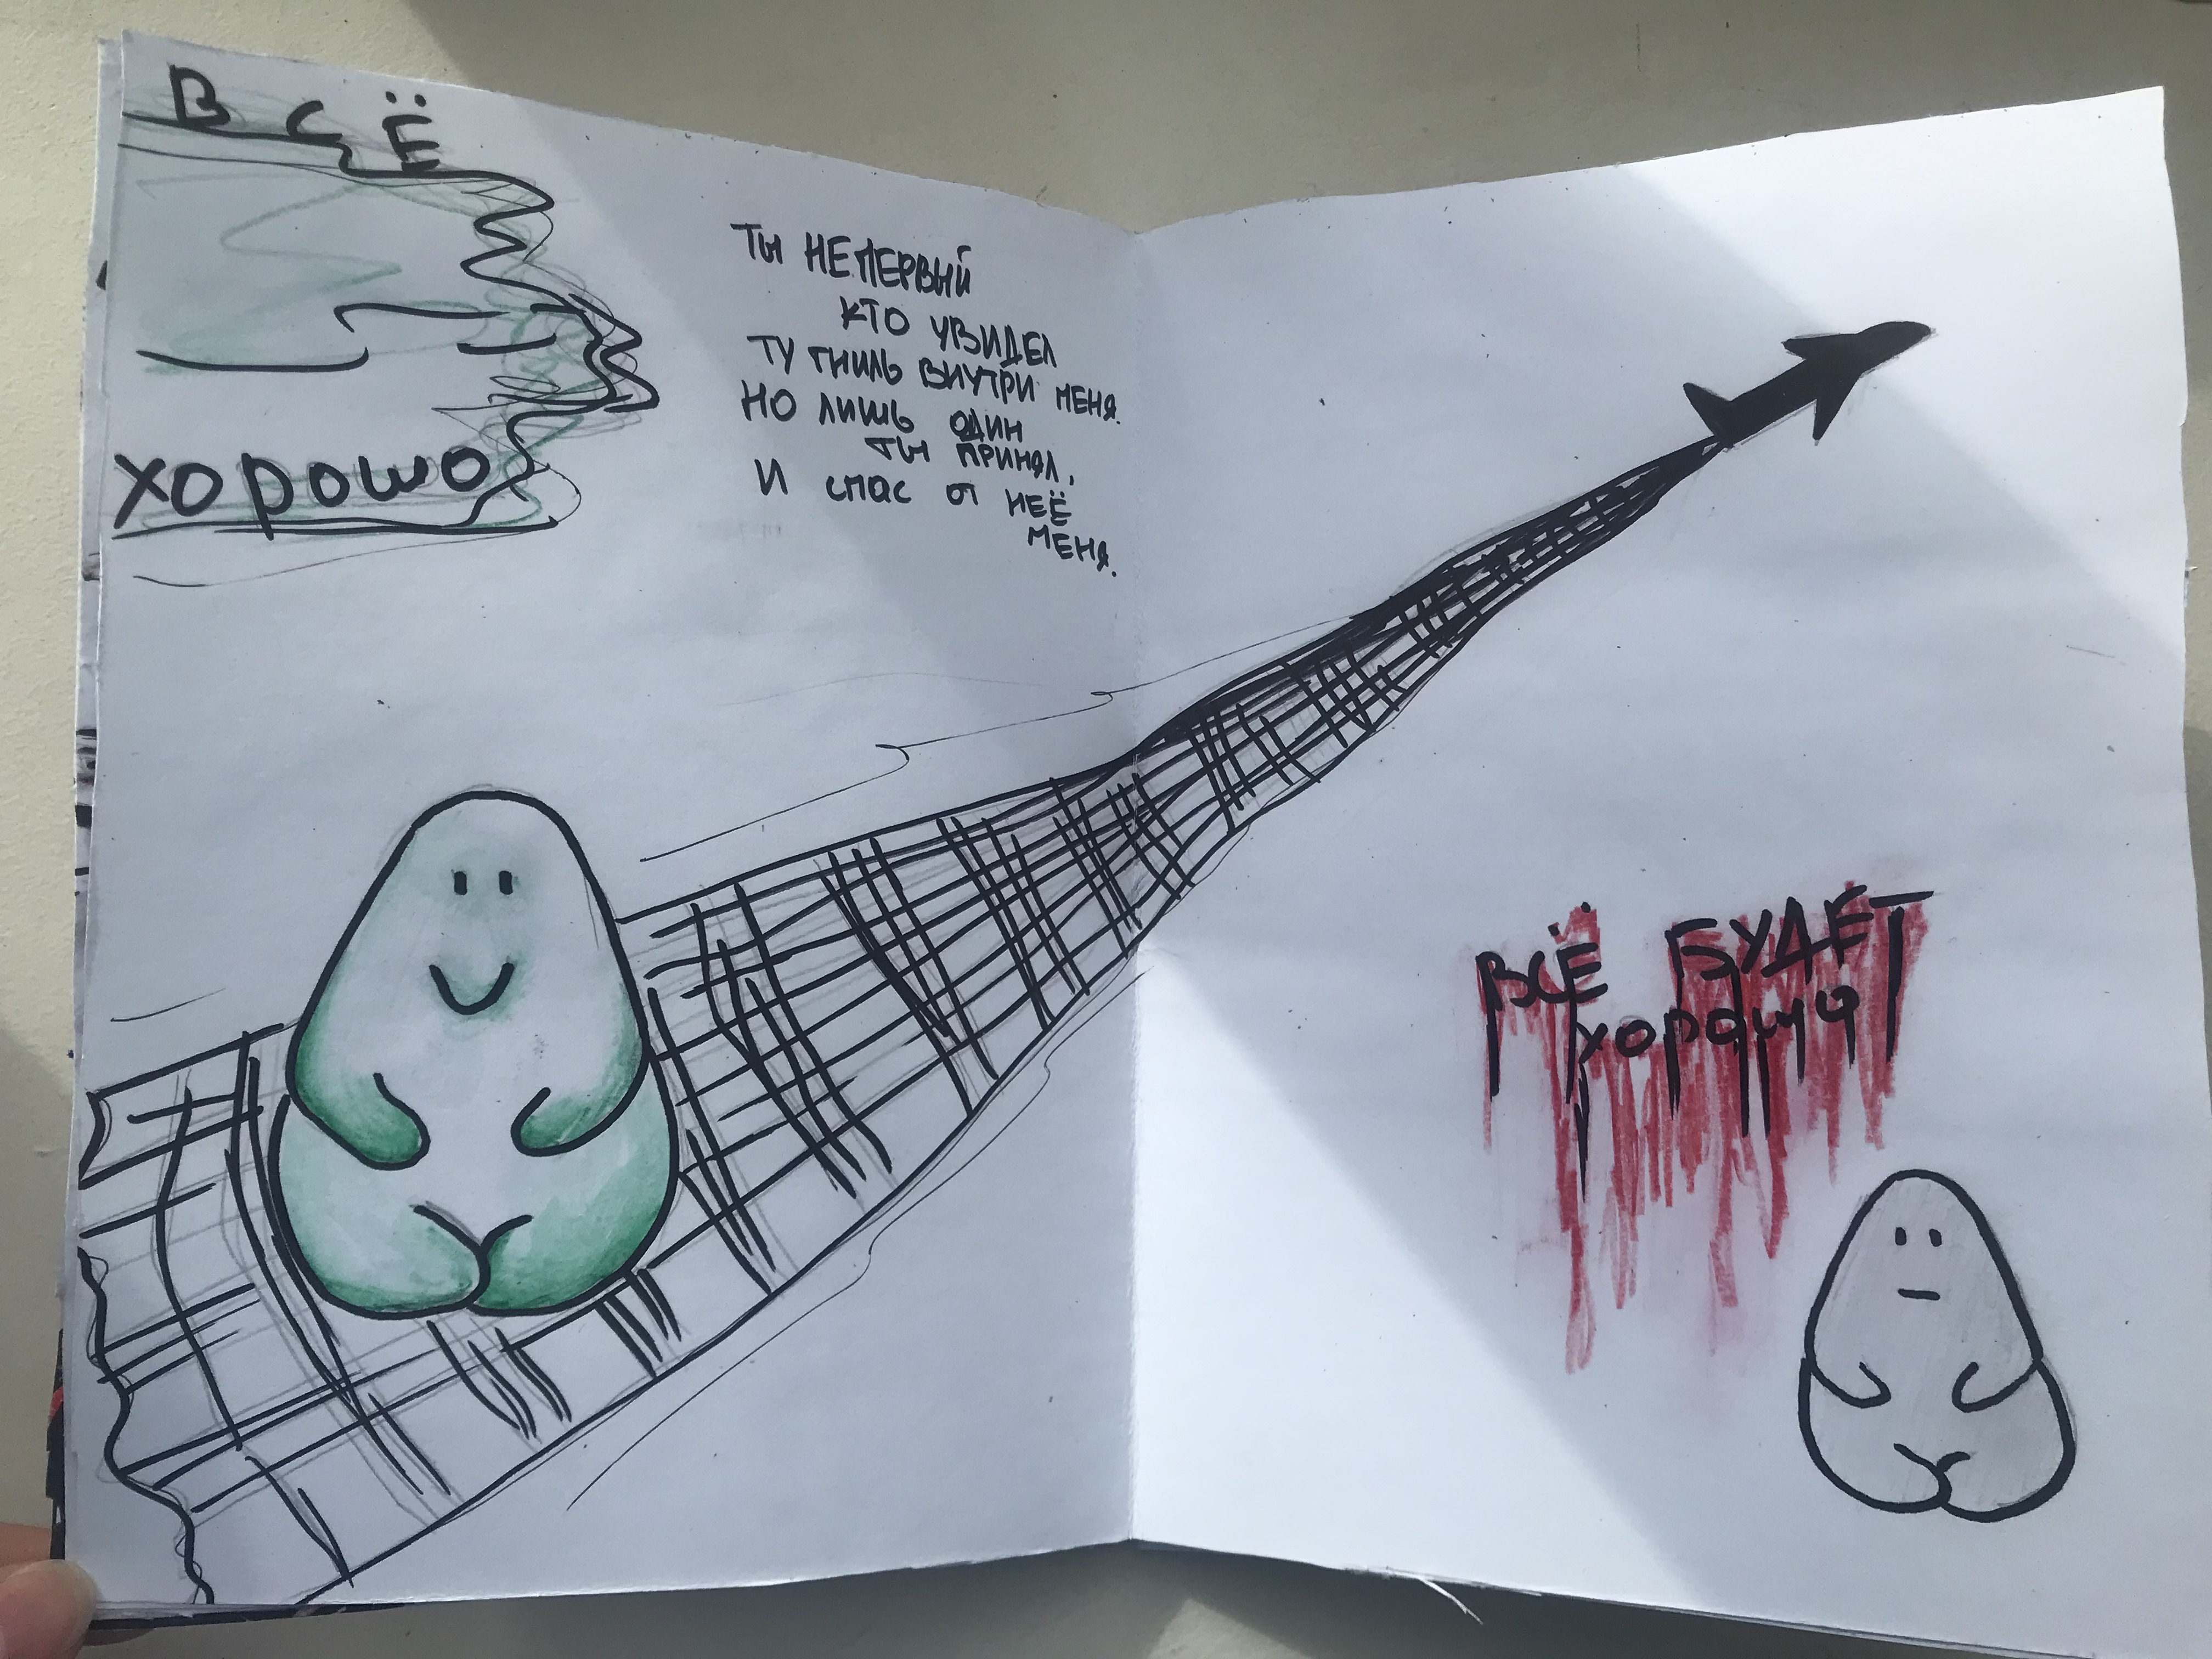 ВСЁ
хорошо
ТЫ НЕ ПЕРВЫЙ
КТО УВИДЕЛ
ТУ ГНИЛЬ ВНУТРИ МЕНЯ.
НО ЛИШЬ ОДИН
ТЫ ПРИНЯЛ,
И СПАС ОТ НЕЁ
МЕНЯ.
ВСЁ БУДЕТ
хорошо